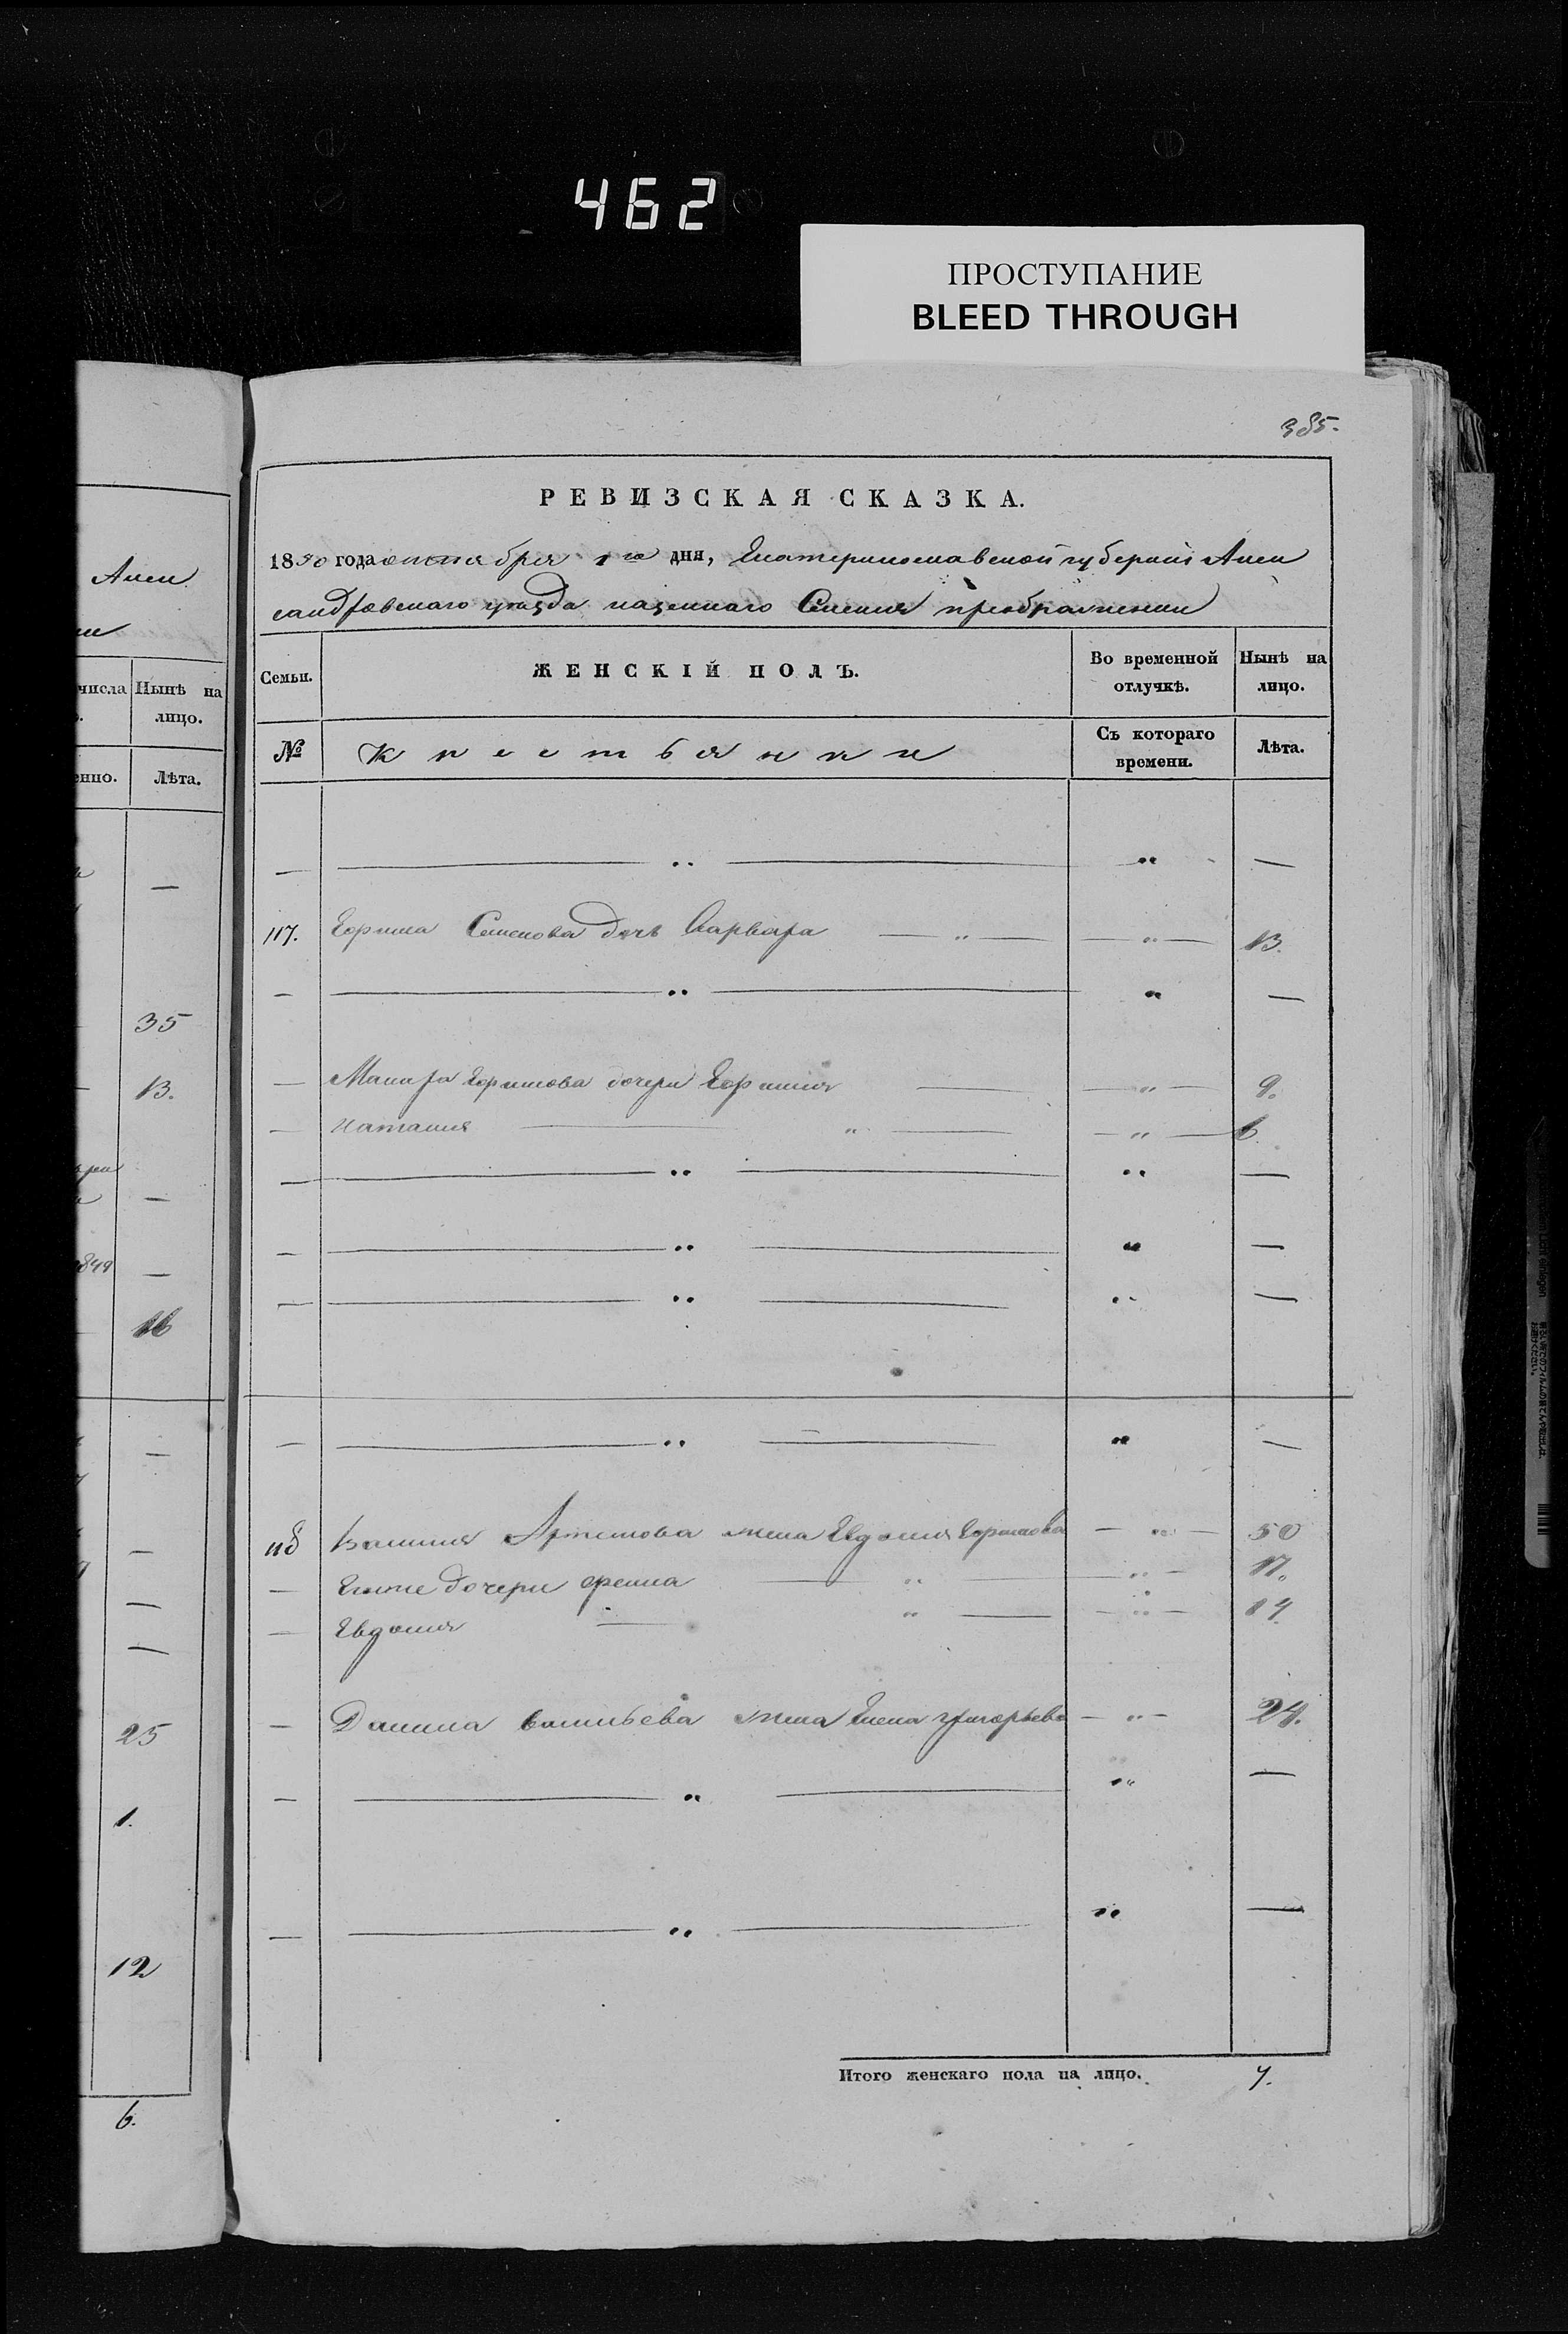 462
ПРОСТУПАНИЕ
BLEED THROUGH
385.
РЕВИЗСКАЯ СКАЗКА.
1850 года октября 1го дня, Екатеринославской губернии Алек
сандровскаго уѣзда казеннаго Селения преображенки
Семьи.
ЖЕНСКІЙ ПОЛЪ.
Во временной отлучкѣ.
Нынѣ на лицо.
№
Крестьянки
Съ котораго времени.
Лѣта.
117. Ефима Семенова дочь Варвара — „ — — „ — 13.
Макара Ефимова дочери Ефимия — — „ — 9.
Наталия — „ — — „ — 6
118 Василия Артемова жена Евдокия Ефимова — „ — 50
дочери — „ — — „ — 17.
Евдокия — „ — — „ — 14
Данила Васильева жена Елена григорьева — „ — 24.
Итого женскаго пола на лицо. 7.
Алек
числа
Нынѣ на лицо.
Лѣта.
35
13.
1849
16
25
1.
12
6.